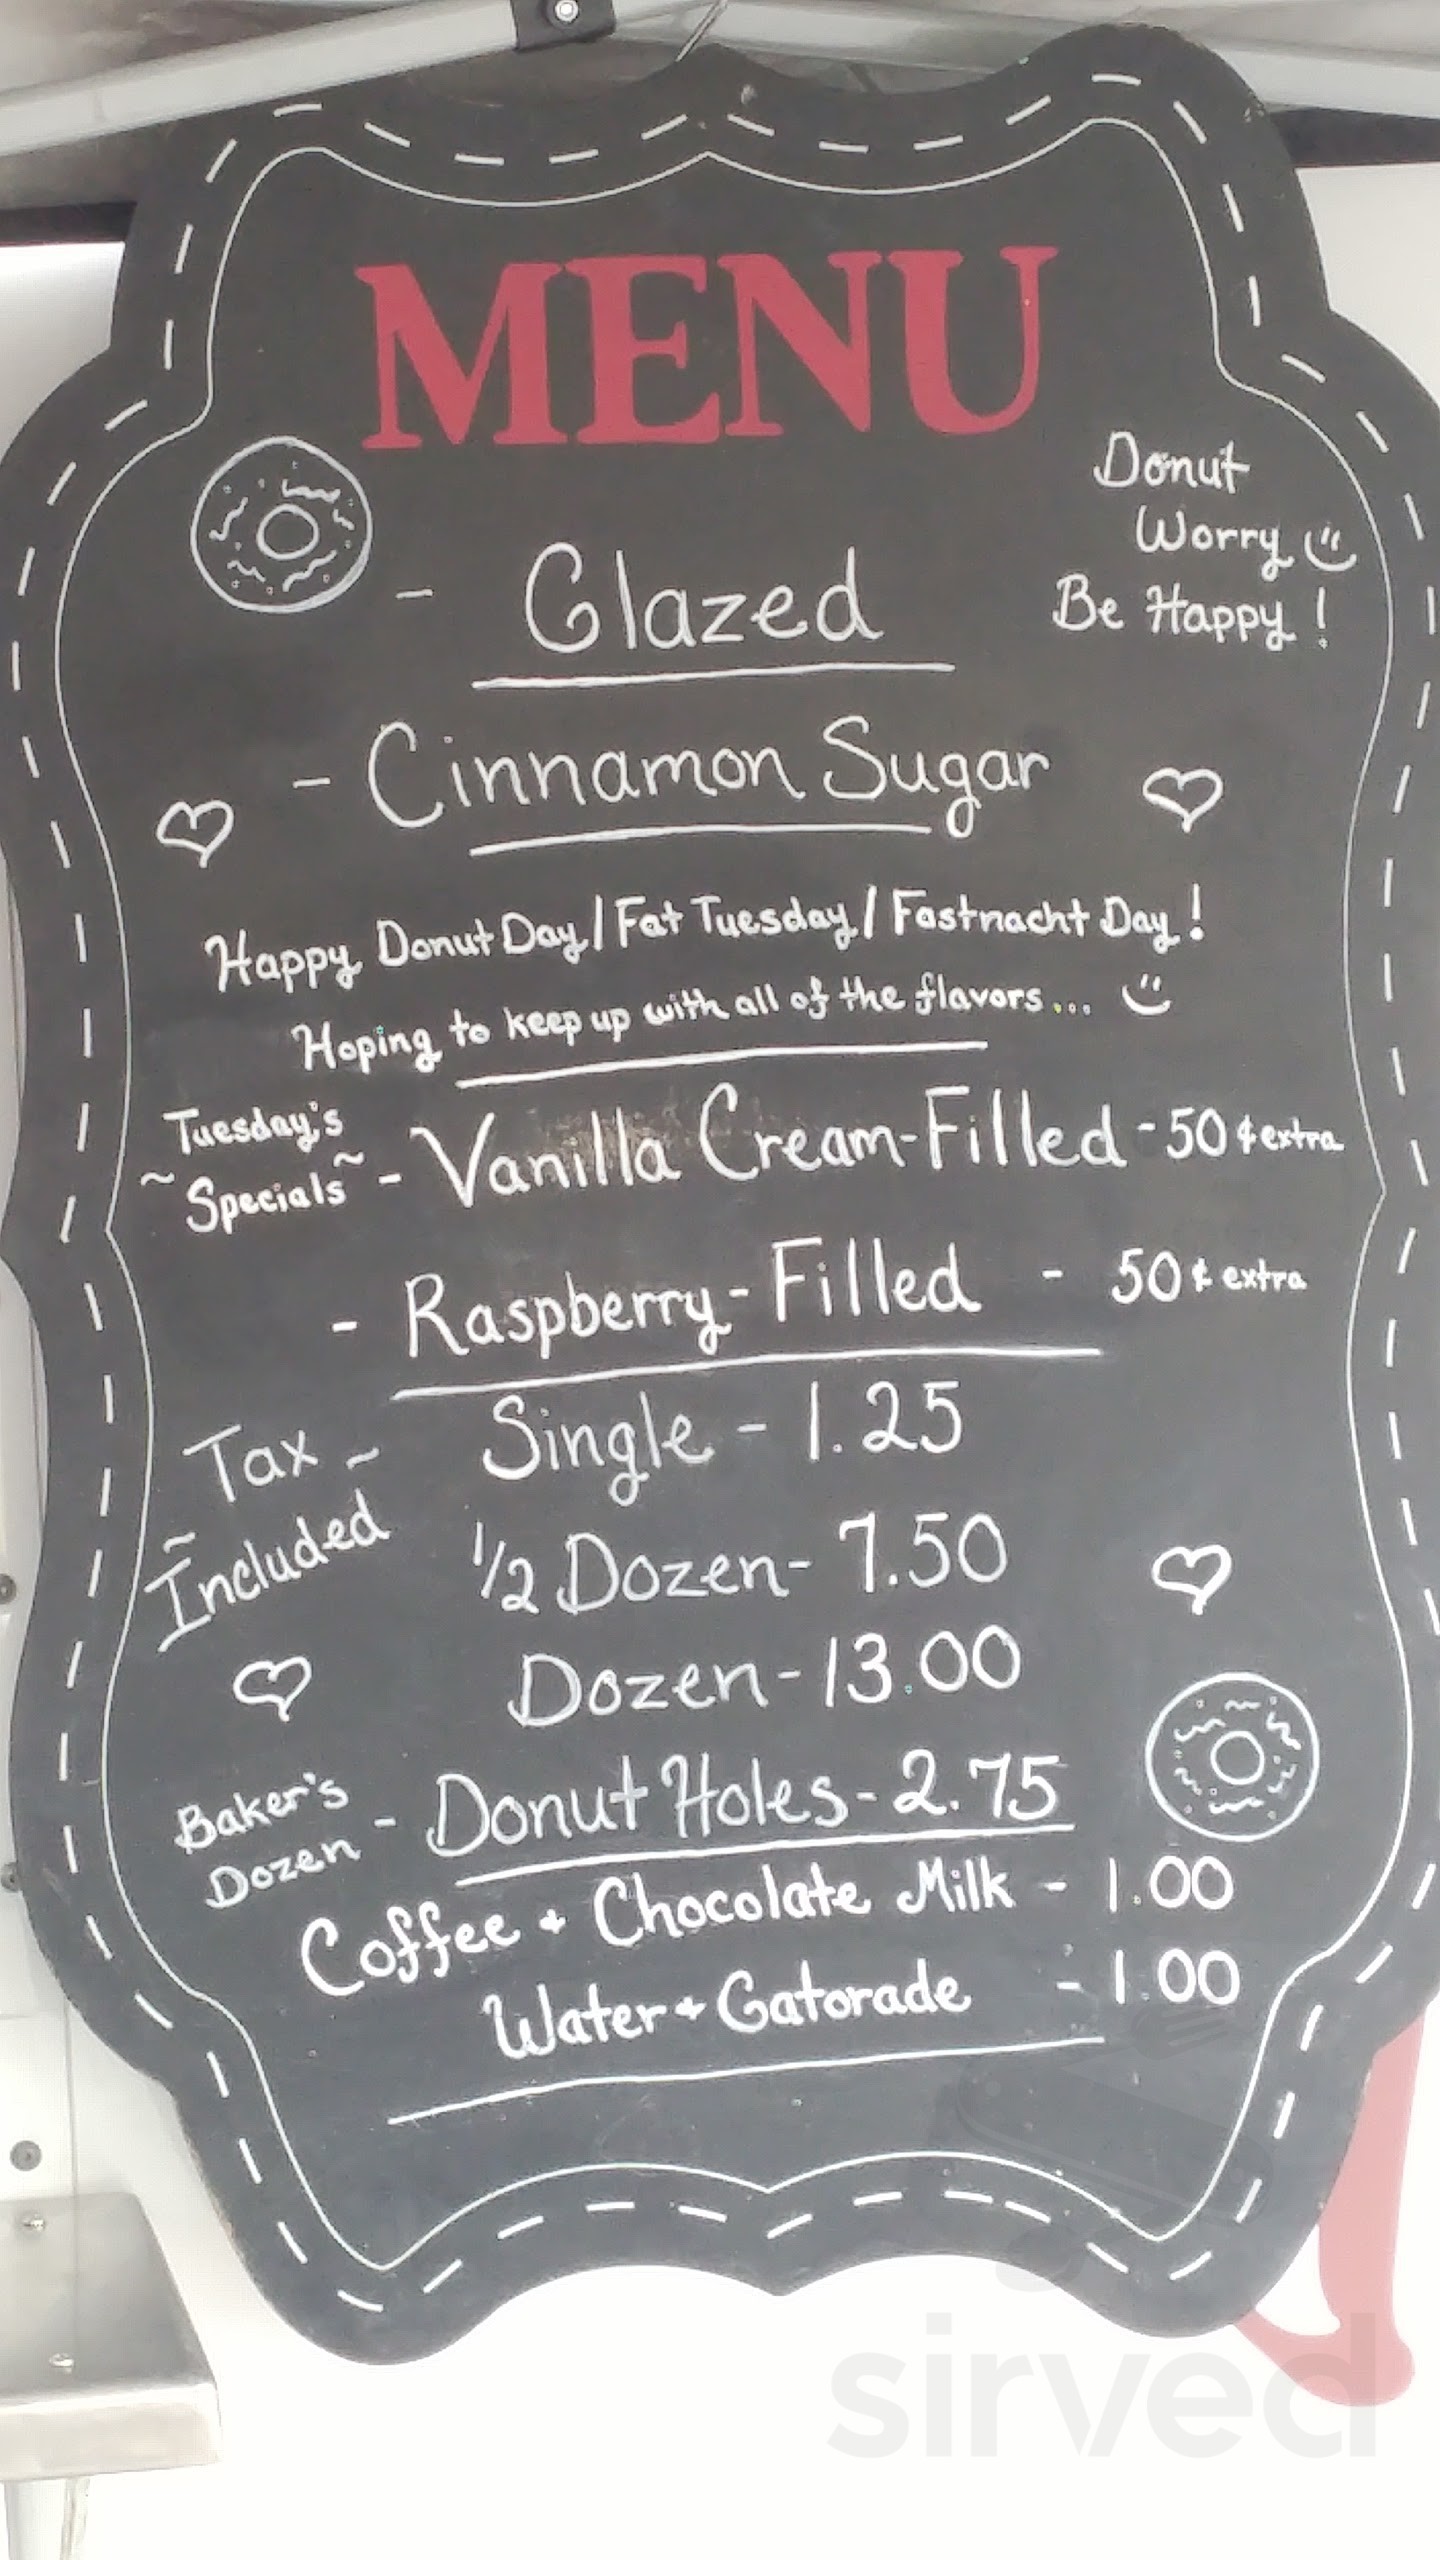 MENU
Donut
Worry
Be Happy!
- Glazed
- Cinnamon Sugar
Happy Donut Day/Fat Tuesday/Fastnacht Day!
Hoping to keep up with all of the flavors...
Tuesday's
~ Specials ~
- Vanilla Cream-Filled - 50¢ extra
- Raspberry-Filled - 50¢ extra
Tax ~
~ Included
Single - 1.25
1/2 Dozen - 7.50
Dozen - 13.00
Baker's
Dozen
- Donut Holes - 2.75
Coffee + Chocolate Milk - 1.00
Water + Gatorade - 1.00
sirved